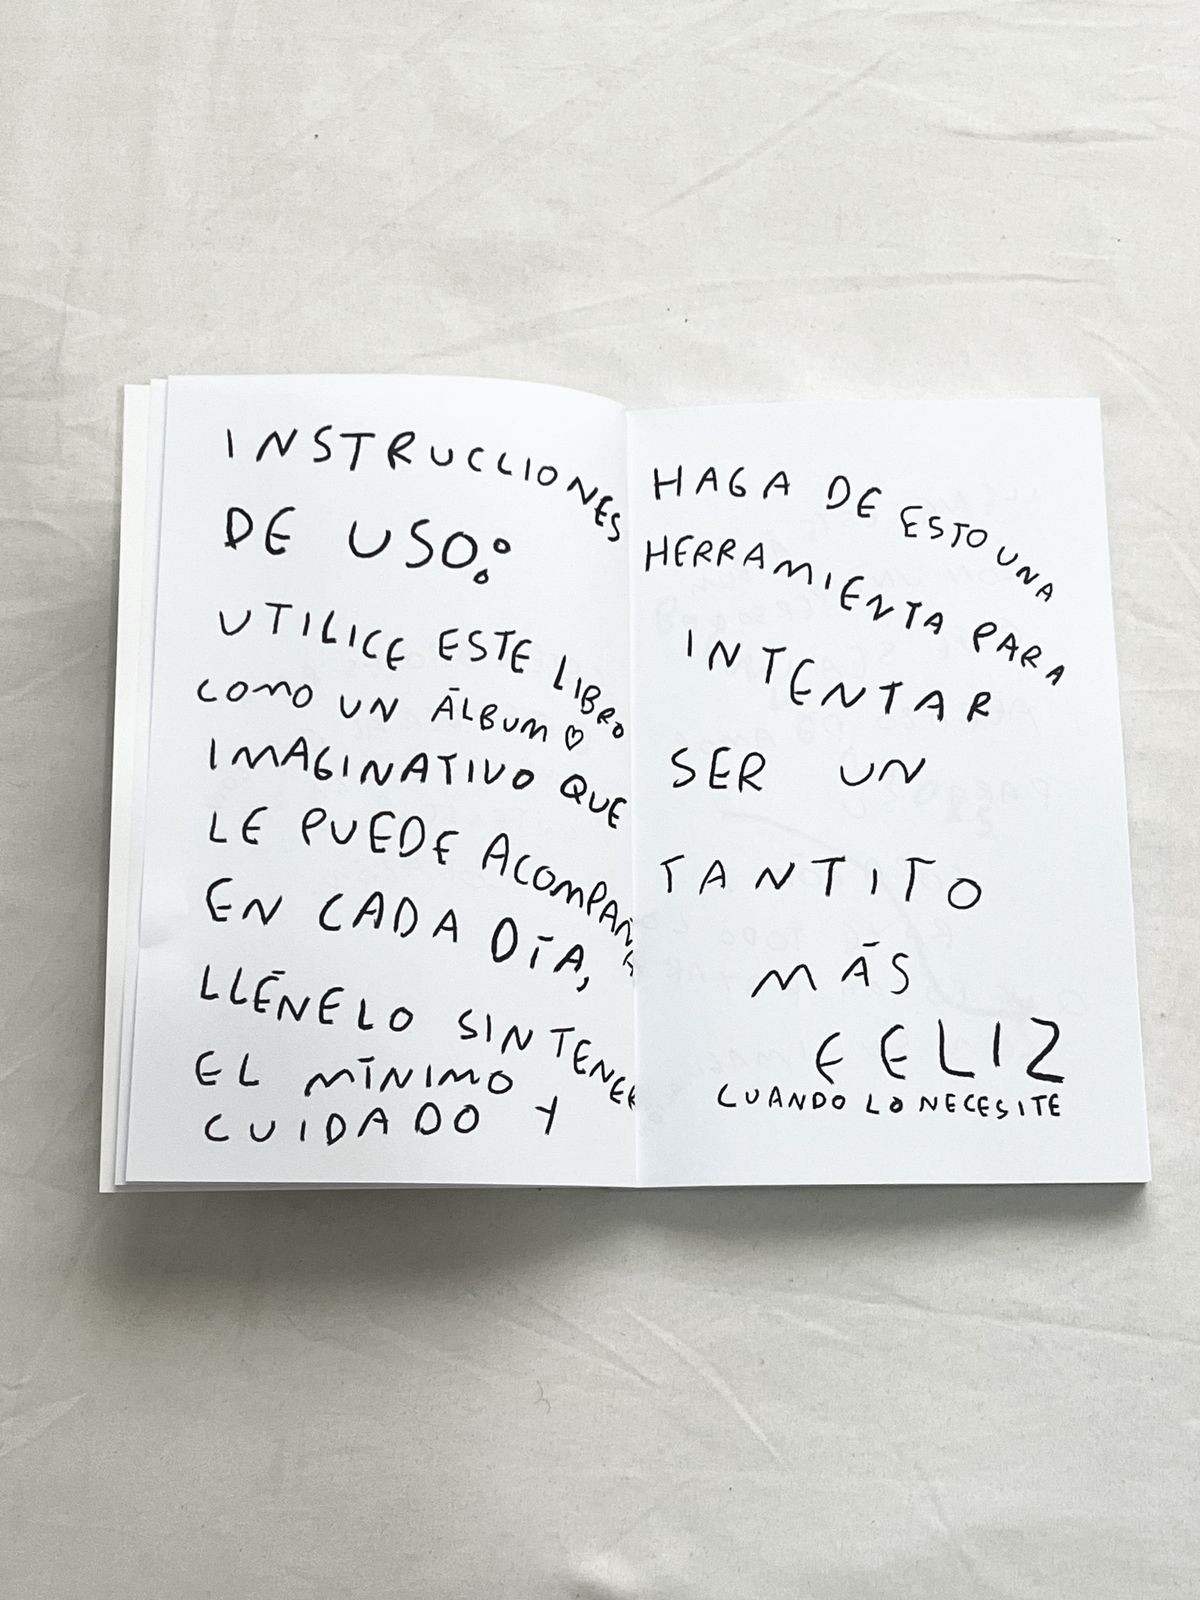 INSTRUCCIONES
DE USO:
UTILICE ESTE LIBRO
COMO UN ÁLBUM ♡
IMAGINATIVO QUE
LE PUEDE ACOMPAÑAR
EN CADA DÍA,
LLÉNELO SIN TENER
EL MÍNIMO
CUIDADO Y
HAGA DE ESTO UNA
HERRAMIENTA PARA
INTENTAR
SER UN
TANTITO
MÁS
FELIZ
CUANDO LO NECESITE